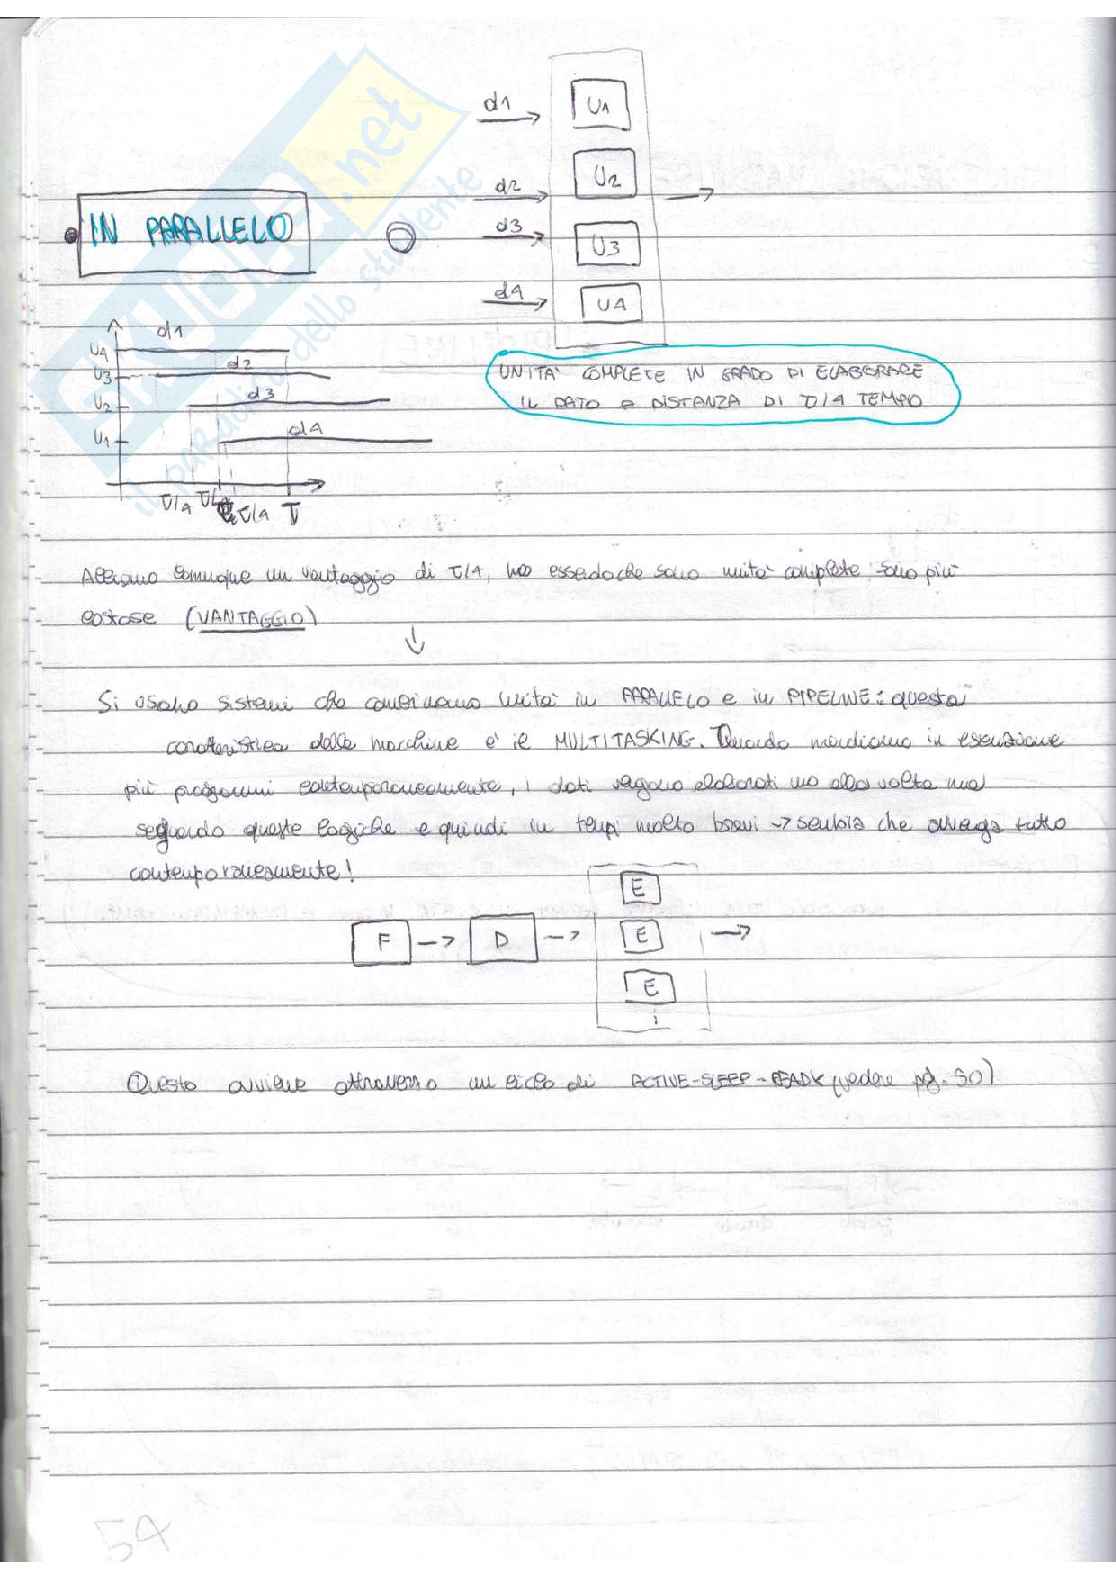 d1 U1
d2 U2
IN PARALLELO
d3 U3
d4 U4
d1
U4
d2
U3
d3
U2
d4
U1
τ/4 τ/4 τ/4 τ
UNITA' COMPLETE IN GRADO DI ELABORARE
IL DATO A DISTANZA DI τ/4 TEMPO
Abbiamo comunque un vantaggio di τ/4, ma essendo che sono unità complete sono più
costose (VANTAGGIO)
Si usano sistemi che combinano unità in PARALLELO e in PIPELINE: questa
caratteristica delle macchine e' il MULTITASKING. Quando mandiamo in esecuzione
più programmi contemporaneamente, i dati vengono elaborati uno alla volta ma
seguendo queste logiche e quindi in tempi molto brevi → sembra che avvenga tutto
contemporaneamente!
E
F → D → E →
E
Questo avviene attraverso un ciclo di ACTIVE-SLEEP-READY (vedere pag. 30)
54
skuola.net
il paradiso dello studente